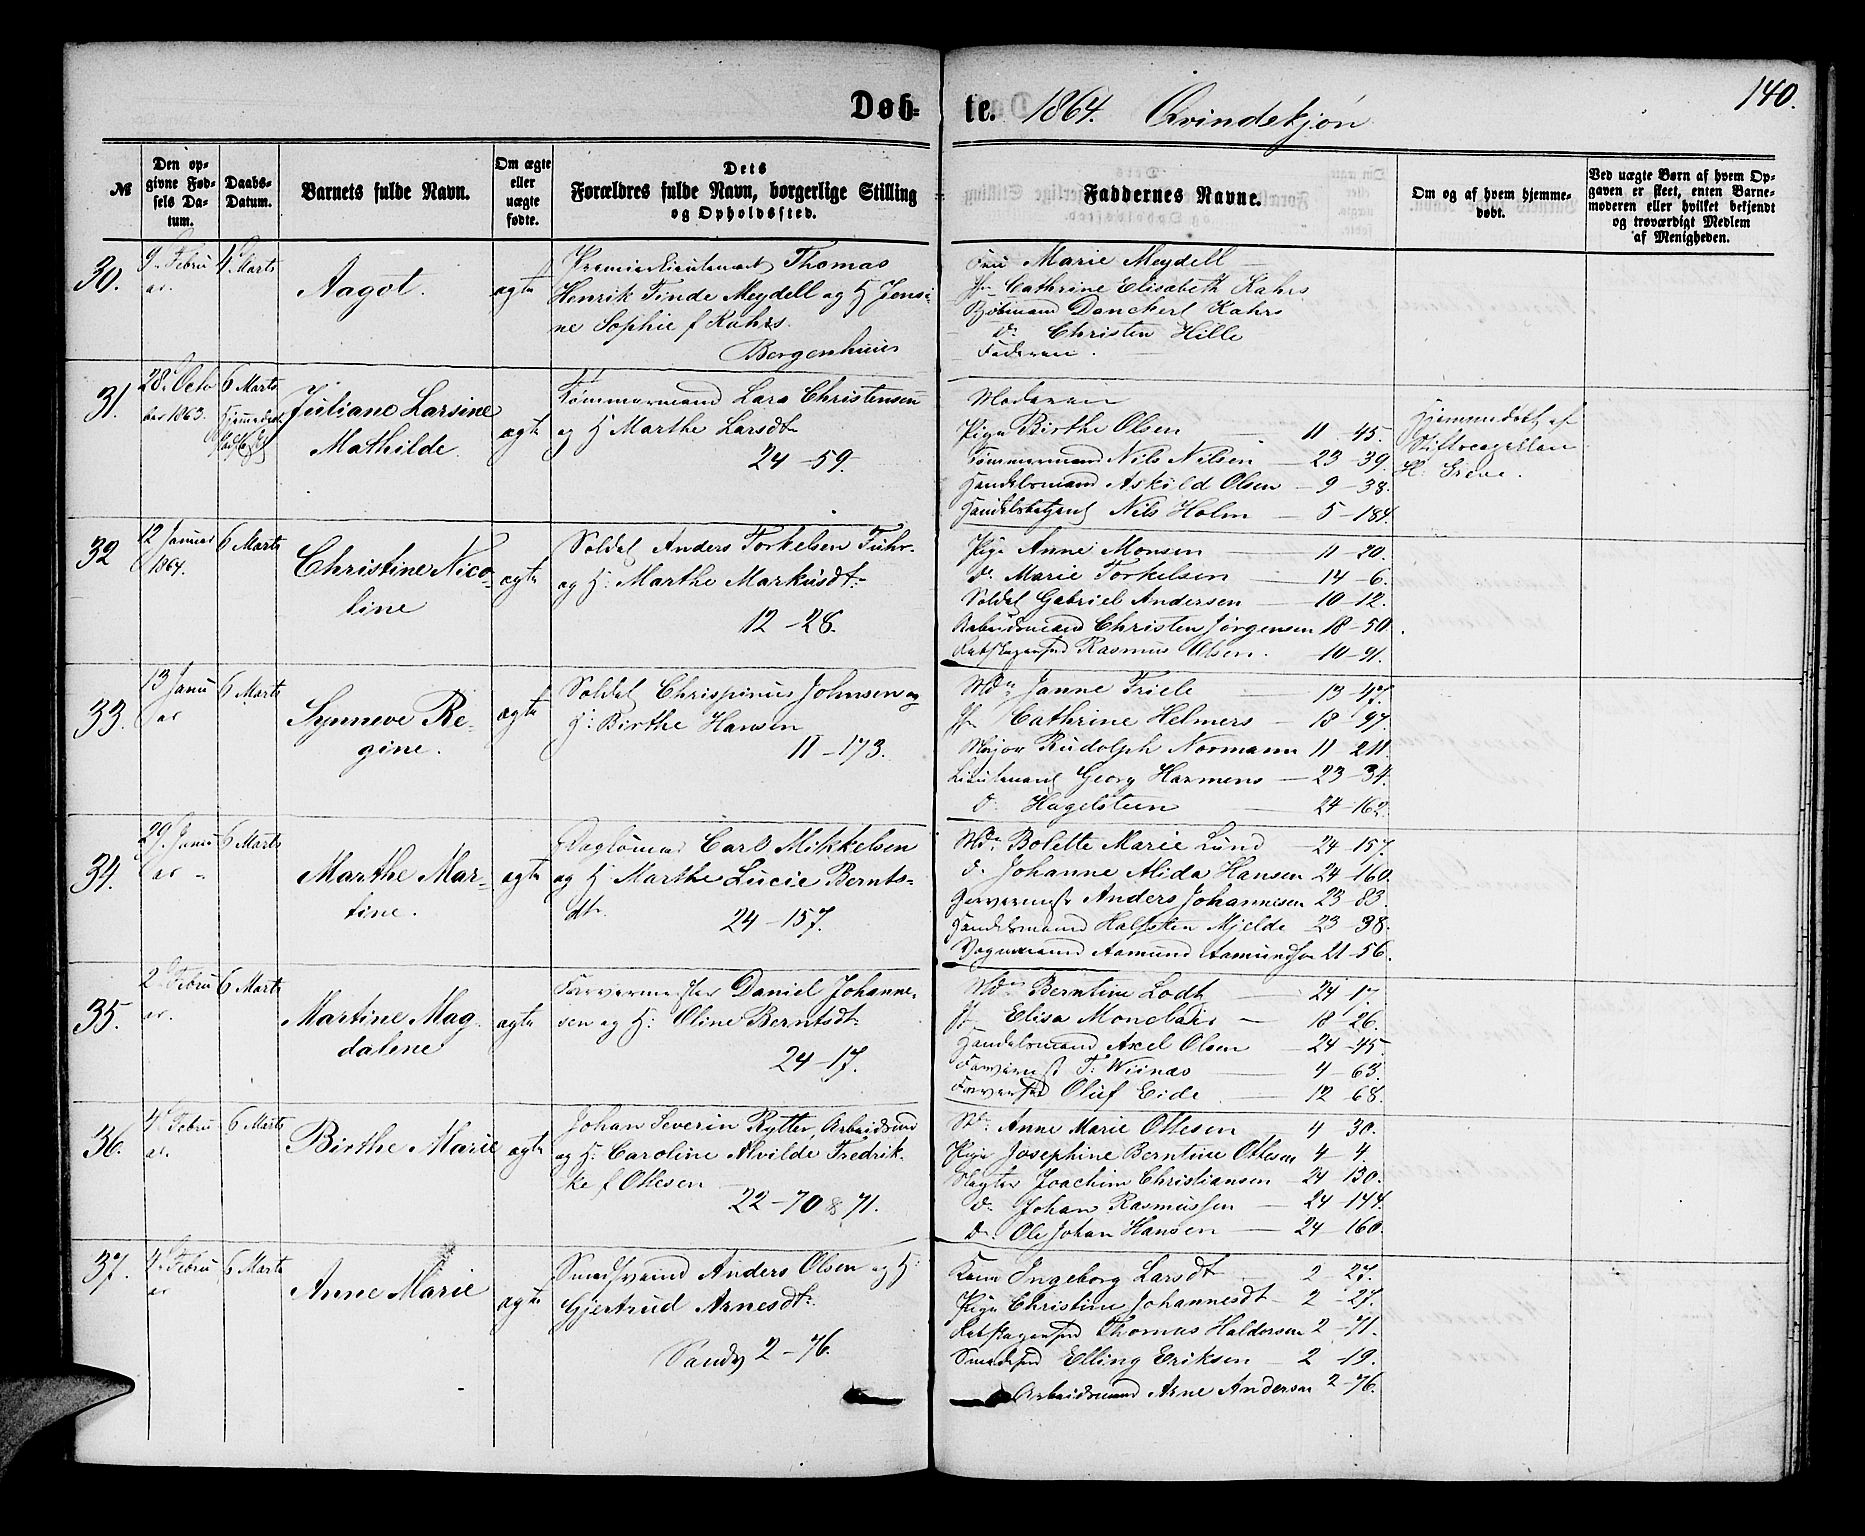 Døb-te. 1864. Qvindekjøn
140.
№
Den opgivne Fødsels Datum.
Daabs-Datum.
Barnets fulde Navn.
Om ægte eller uægte fødte.
Dets Forældres fulde Navn, borgerlige Stilling og Opholdssted.
Faddernes Navne.
Om og af hvem hjemmedøbt.
Ved uægte Børn af hvem Opgaven er skeet, enten Barnemoderen eller hvilket bekjendt og troværdigt Medlem af Menigheden.
30.
9. Febru
ar.
4. Marts
Aagot.
ægte
Premierlieutenant Thomas
Henrik Tinde Meydell og H. Jensi-
ne Sophie f Kahrs.
Bergenhuus
Fru Marie Meydell
Jfr Cathrine Elisabeth Kahrs
Kjøbmand Danckert Kahrs
do Christen Hille
Faderen.
31.
28. Octo
ber 1863.
6 Marts
Juliane Larsine
Mathilde.
ægte
Tømmermand Lars Christensen
og H Marthe Larsdtr
24-59.
Moderen
Pige Birthe Olsen 11-45.
Tømmermand Nils Nilsen - 23-39.
Handelsmand Askild Olsen - 9-38.
Handelsbetjent Nils Holm - 5-184.
Hjemmedøbt af
Stiftscapellan
H. Greve.
32
12 Januar
1864.
6 Marts
Christine Nico-
line
ægte
Soldat Anders Torkelsen Tuhr.
og H: Marthe Markusdtr
12-28.
Pige Anne Monsen 11-20.
do Marie Torkelsen 14-6.
Soldat Gabriel Andersen 10-12.
Arbeidsmand Christen Jørgensen 18-50.
Rasmus Olsen. 10-91.
33.
13 Janu
ar
6 Marts
Synneve Re-
gine.
ægte
Soldat Chrispinus Johnsen og
H: Birthe Hansen
11-173.
Md. Janne Friele 13-47.
Jfr Cathrine Helmers - 18-97.
Major Rudolph Normann 11-211.
Lieutenant Georg Harmens - 23-34.
do Hagelsteen 24-162.
34.
29. Janu
ar
6 Marts
Marthe Mar-
tine.
ægte
Dagløner Carl Mikkelsen
og H Marthe Lucie Bernts-
dtr. 24-157.
Md. Bolette Marie Lund - 24-157.
do Johanne Alida Hansen 24-160.
Farvermstr Anders Johannesen 23-83.
Handelsmand Halfsten Mjelde 23-38.
Vognmand Aamund Aamundsen 21-56.
35.
2 Febru
ar.
6 Marts
Martine Mag-
dalene
ægte
Farvermester Daniel Johanne-
sen og H: Oline Berntsdtr
24-17.
Md. Berntine Lodt 24-17.
Jfr Elisa Monclair - 18-26.
Handelsmand Axel Olsen - 24-45.
T: Wiinæs 4-63.
Farversvd Oluf Eide 12-68.
36.
4. Febru
ar.
6 Marts
Birthe Marie
ægte
Johan Severin Rytter, Arbeidsmd
og H: Caroline Alvilde Fredrik-
ke f Ottesen
22-70 & 71.
Md. Anne Marie Ottesen 4-30.
Pige Josephine Berntine Ottesen 4-4.
Slagter Joachim Christiansen 24-130.
do Johan Rasmussen 24-144.
do Ole Johan Hansen - 24-160.
37.
4. Febru
ar
6 Marts
Anne Marie
ægte
Smedsvend Anders Olsen og H:
Gjertrud Arnesdtr.
Sandv 2-76.
Kone Ingeborg Larsdt 2-27.
Pige Christine Johannesdt 2-27.
Thomas Haldorsen 2-71.
Smedesvd Elling Eriksen - 2-19.
Arbeidsmand Arne Andersen 2-76.